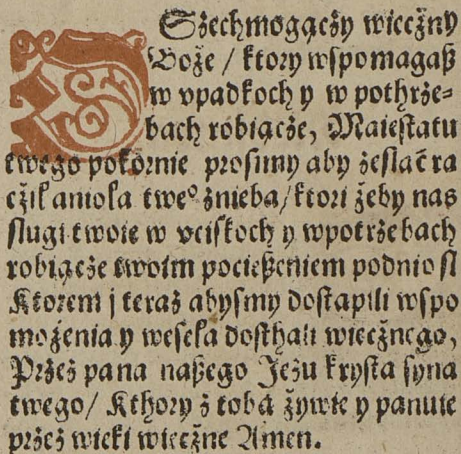 WSżechmogączy wiecżny
Boże / ktory wspomagaß
w vpadkoch y w pothrże⸗
bach robiącże, Maiestatu
twego pokornie prosimy aby zeslac̄ ra
cżił anioła tweº żnieba/ktori żeby nas
slugi twoie w vciskoch y wpotrżebach
robiącże twoim pocießeniem podnio sl
Ktorem j teraż abysmy dostapili wspo
możenia y wesela dosthali wiecżnego,
Przeż pana naßego Jeżu krysta syna
twego/ Kthory ż tobą żywie y panuie
przeż wieki wiecżne Amen.